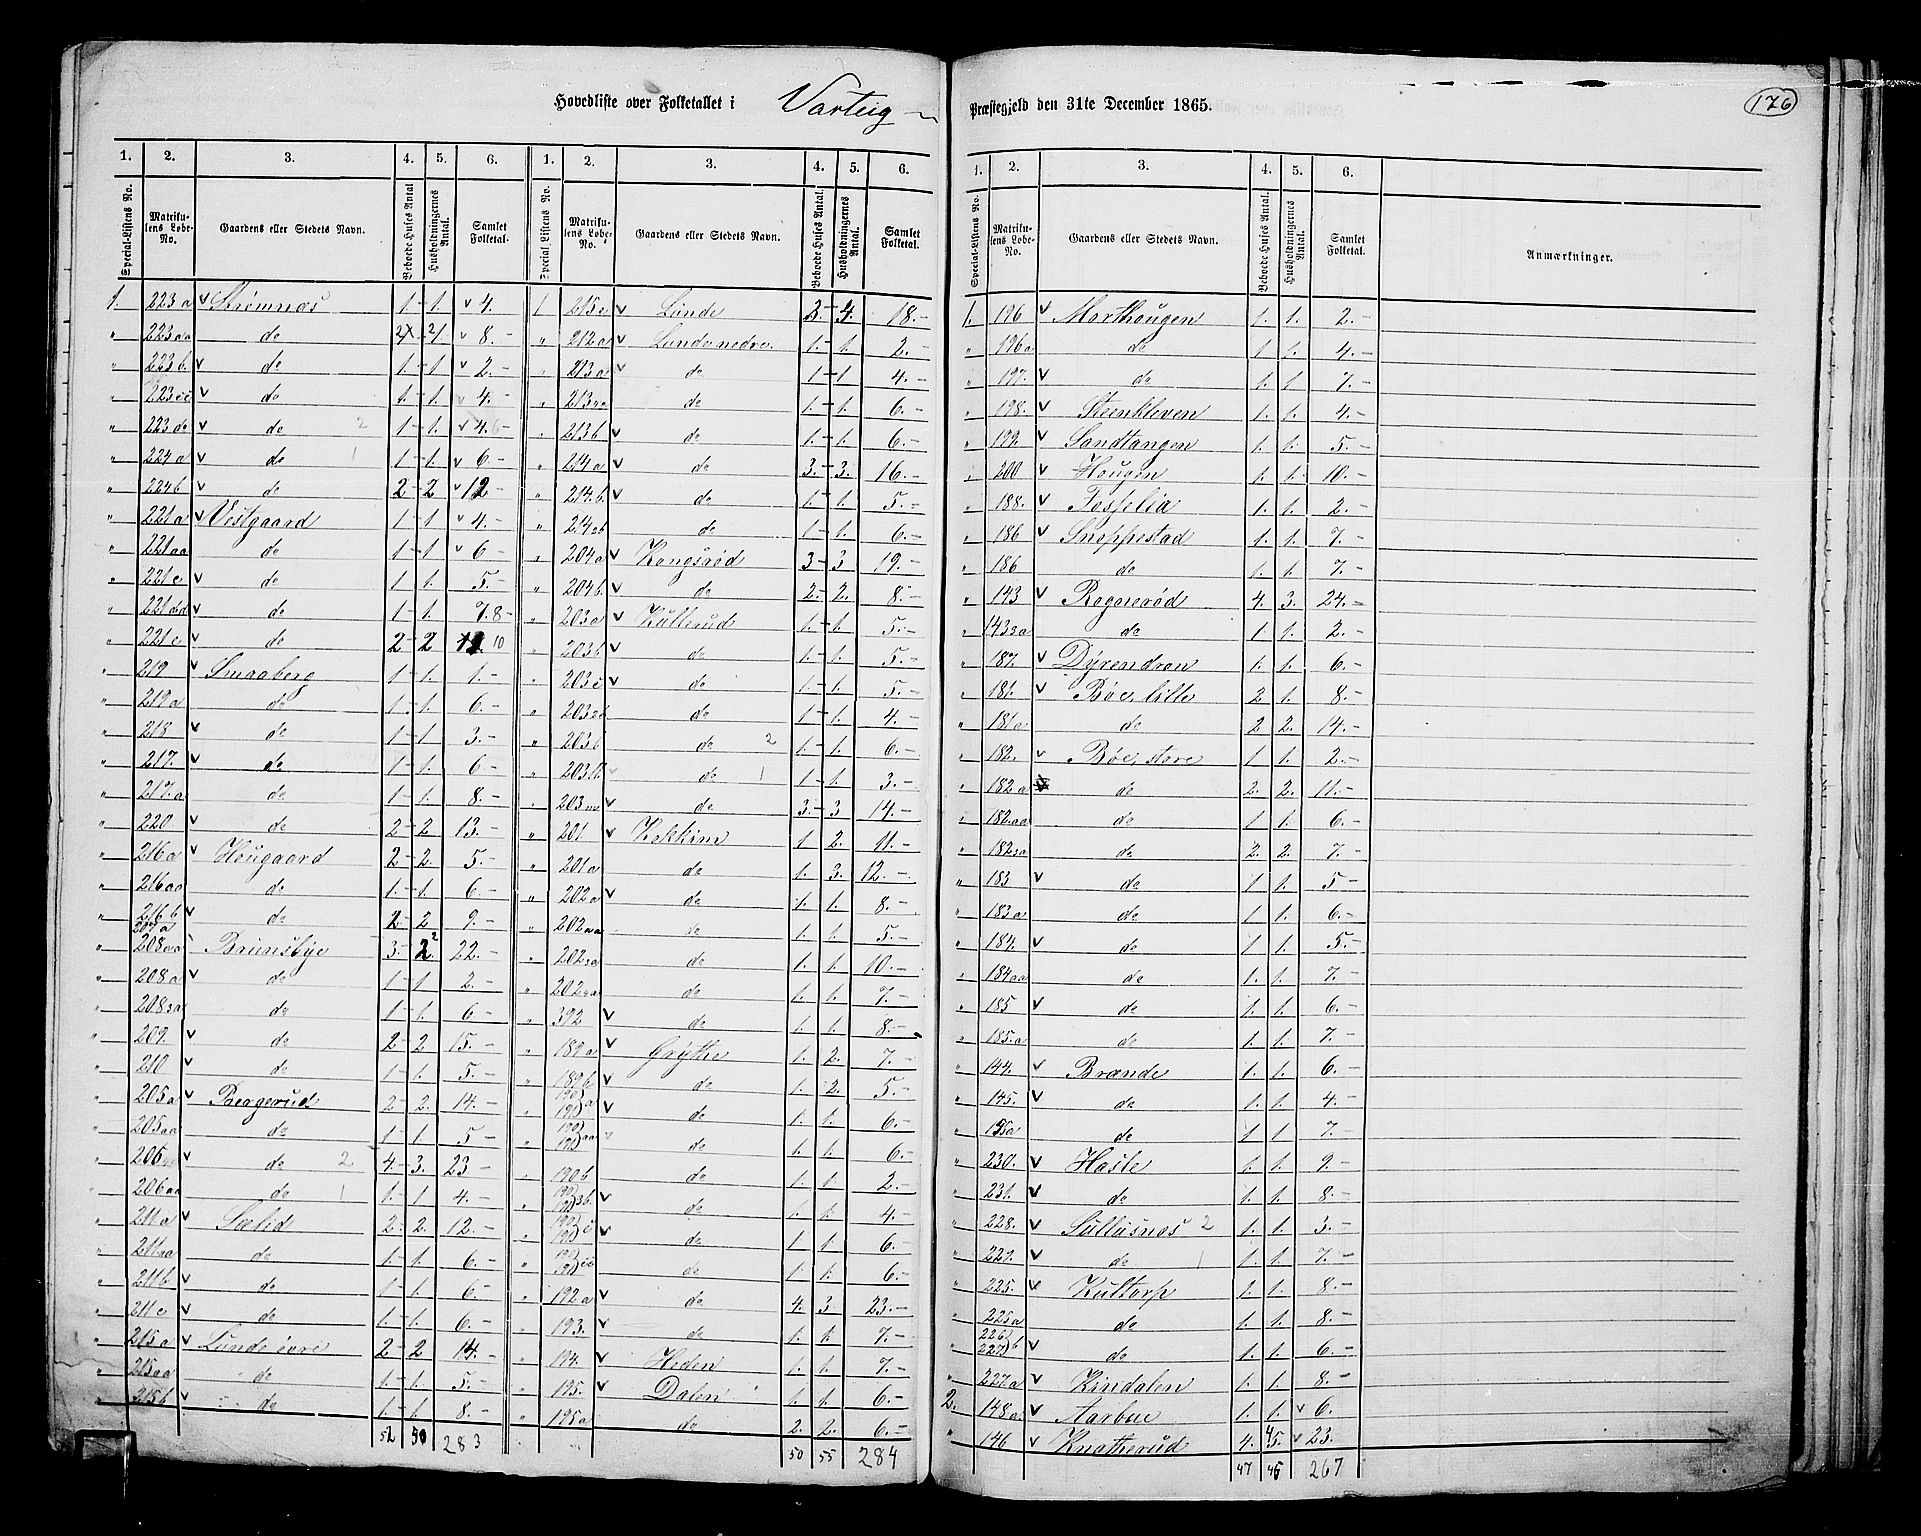 Hovedliste over Folketallet i Varteig Præstegjeld den 31te December 1865.
176
1. 2. 3. 4. 5. 6. 1. 2. 3. 4. 5. 6.
Special-Listens No. Matrikulens Løbe-No. Gaardens eller Stedets Navn. Beboede Huses Antal Husholdningernes Antal. Samlet Folketal. Special-Listens No. Matrikulens Løbe-No. Gaardens eller Stedets Navn. Beboede Huses Antal. Husholdningernes Antal. Samlet Folketal.
1. 223a Strømnæs 1 1. 4.
" 223aa do 2 2 8.
" 223b. do 1 1 2.
" 223c do 1. 1. 4.
" 223d do 2 1 1. 4. 6
" 224a do 1 1 1. 6.
" 224b do 2 2 12
" 221a Vestgaard 1 1 4.
" 221aa do 1 1 6
" 221c do 1 1. 5.
" 221d do 1 1. 7. 8
" 221e do 2 2 10
" 219 Smaaberg 1 1. 1.
" 219a do 1 1. 6.
" 218 do 1 1 3.
" 217. do 1 1. 6
" 217.a do 1 1. 8.
" 220 do 2 2. 13.
" 216a Hougaard 2 2. 5.
" 216aa do 1. 1. 6
" 216b do 2 2 9.
" 207a 208aa Brunsbye 3. 2 22.
" 208a do 1 1 2.
" 208 3a do 1 1. 6
" 209. do 2 2 15.
" 210 do 1 1. 5.
" 205a Bergerud 2 2. 14.
" 205aa do 1 1 5
" 206 do 2 4. 3. 23
" 206aa do 1 1. 1 4.
" 211.a Sælid 2. 2. 12.
" 211aa do 1. 1. 6.
" 211b do 1. 1. 6.
" 211c do 1 1. 6.
" 215a Lunde övre 2 2 14.
" 215aa do 1. 1. 5.
" 215b do 1. 1. 8.
52 50 283
1 215c Lunde 3. 4. 18.
" 212a Lunde nedre. 1. 1. 2.
" 213a do 1 1 4.
" 213aa do 1 1. 6.
" 213b do 1. 1. 6.
" 214a do 3. 3. 16.
" 214.b. do 1. 1. 5.
" 214 2b do 1 1 6.
" 204a Kongsrød 3 3 19.
" 204b. do 2. 2. 8.
" 203a Kullerud 1. 1. 5.
" 203b do 1. 1. 5.
" 203c do 1. 1. 5.
" 203 do 1 1. 4.
" 203b do 2 1. 1. 6.
" 203 do 1 1 1. 3.
" 203 do 3. 3 14.
" 201. Kokkim 1 2. 11.
" 201a do 1. 3. 12.
" 202a do 1. 1. 8.
" 202aa do 1. 1. 5.
" 202 3a do 1. 1. 10.
" 202 4a do 1. 1. 7.
" 392 do 1. 1. 8.
" 189a Grytte 1. 2. 7.
" 189b do 1. 2. 5.
" 190 191 a do 1. 1. 6.
" 190 191 aa do 1. 1. 6.
190b do 1. 1. 2.
" 190 191 3b. do 1. 1. 4.
" 190 191 c do 1 1. 6.
" 190 191 cc do 1. 1. 6.
192a do 4. 3. 23.
193. do 1. 1. 7.
" 194. Heden 1. 1. 7.
" 195. Dalen 1. 1. 6.
" 195a do 2. 2. 6.
50 55 284
1. 2. 3. 4. 5. 6.
Special-Listens No. Matrikulens Løbe-No. Gaardens eller Stedets Navn. Beboede Huses Antal. Husholdningernes Antal. Samlet Folketal. Anmærkninger.
1. 196 Morthougen 1. 1. 2.
" 196a do 1 1. 4.
" 197. do 1. 1 7.
" 198. Steenkleven 1. 1. 4.
" 199. Sandtangen 1. 1. 5.
200 Hougen 1. 1. 10.
" 188. Fosselia 1. 1. 2.
" 186 Sneppestad 1. 1. 7.
" 186 do 1. 1. 7.
" 143 Rognerød 4. 3. 24.
" 143 2a do 1 1. 2.
" 187. Dyrendron 1. 1. 6.
" 181. Böe, lille 2 1. 8.
" 181a do 2 2. 14.
" 182. Böe, store 1 1. 2.
" 182a do 2. 2. 11.
" 182aa do 1 1. 6.
" 182 3a do 2. 2. 7.
" 183 do 1 1. 5
" 183a do 1 1. 6.
" 184. do 1 1. 5.
" 184aa do 1. 1. 7.
" 185 do 1. 1. 6.
" 185.a do 1. 1. 7.
" 144. Brande 1. 1. 6.
" 145. do 1. 1. 4.
" 145a do 1 1 7.
" 230. Hasle 1. 1. 9.
" 231. do 1. 1. 8.
" 228. Sullusnæs 2 1. 1. 3.
" 229. do 1 1. 1. 7.
" 225. Kultorp 1. 1. 8.
" 225a do 1. 1. 8.
" 226 227 b do 1. 1. 6.
" 227.a Kindalen 1. 1. 8.
2. 148a. Aarbue 1. 1. 6.
" 146 Knatterud 4. 5. 23.
47 45 267